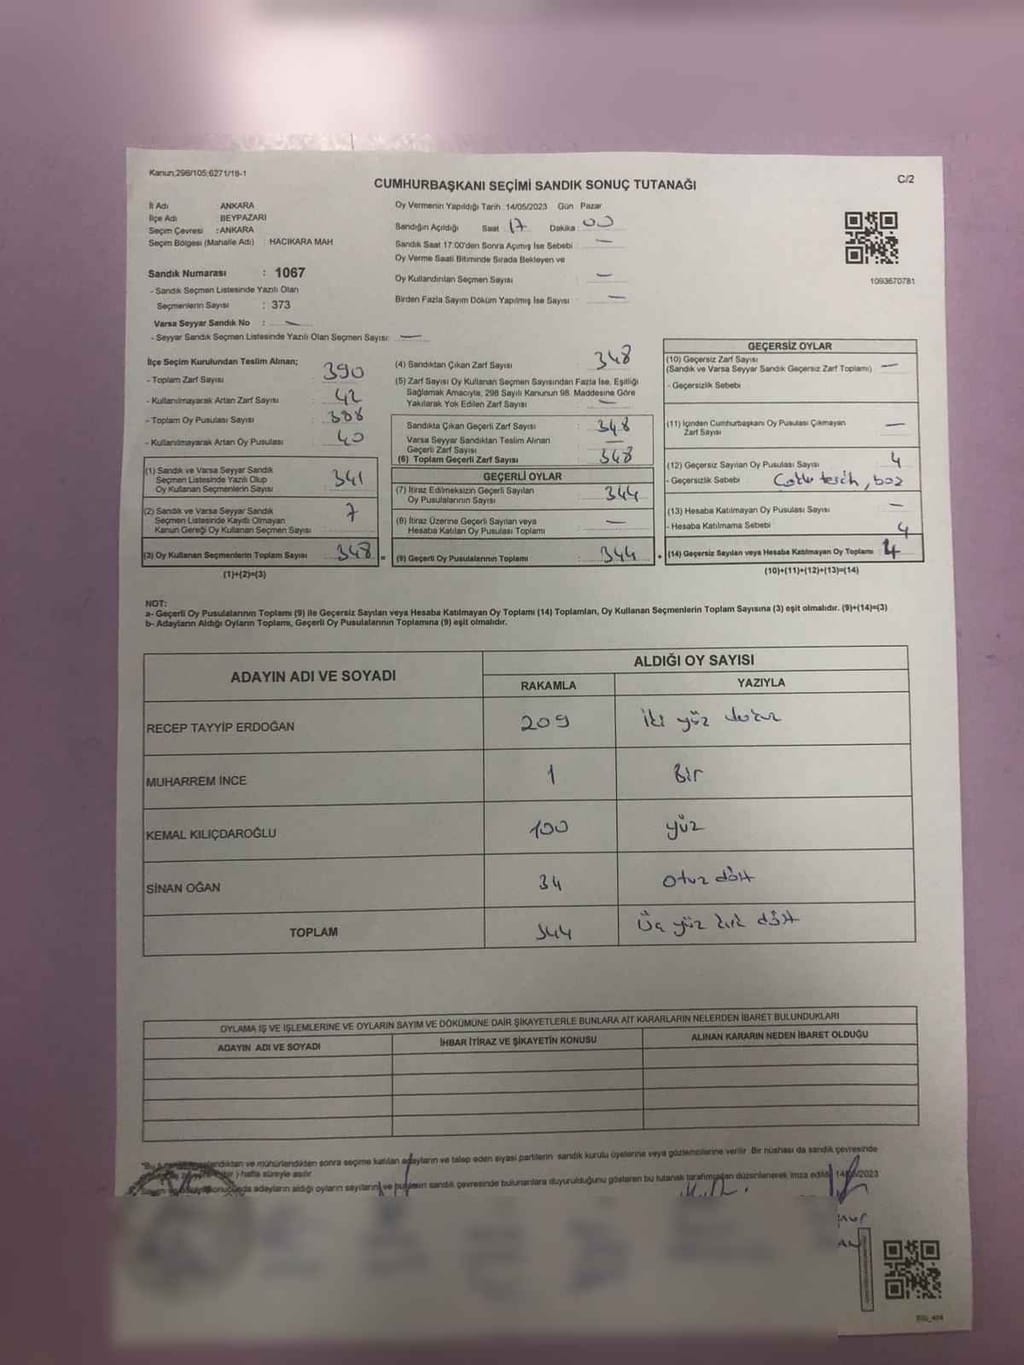 Kanun;298/105;6271/18-1
C/2
CUMHURBAŞKANI SEÇİMİ SANDIK SONUÇ TUTANAĞI
İl Adı ANKARA
İlçe Adı BEYPAZARI
Seçim Çevresi :ANKARA
Seçim Bölgesi (Mahalle Adı) HACIKARA MAH
Sandık Numarası : 1067
- Sandık Seçmen Listesinde Yazılı Olan
Seçmenlerin Sayısı : 373
Varsa Seyyar Sandık No : —
- Seyyar Sandık Seçmen Listesinde Yazılı Olan Seçmen Sayısı: —
Oy Vermenin Yapıldığı Tarih :14/05/2023 Gün Pazar
Sandığın Açıldığı Saat 17 Dakika 00
Sandık Saat 17:00'den Sonra Açımış İse Sebebi —
Oy Verme Saati Bitiminde Sırada Bekleyen ve
Oy Kullandırılan Seçmen Sayısı —
Birden Fazla Sayım Döküm Yapılmış İse Sayısı —
1093670781
İlçe Seçim Kurulundan Teslim Alınan;
- Toplam Zarf Sayısı 390
- Kullanılmayarak Artan Zarf Sayısı 42
- Toplam Oy Pusulası Sayısı 388
- Kullanılmayarak Artan Oy Pusulası 40
(1) Sandık ve Varsa Seyyar Sandık
Seçmen Listesinde Yazılı Olup
Oy Kullanan Seçmenlerin Sayısı 341
(2) Sandık ve Varsa Seyyar Sandık
Seçmen Listesinde Kayıtlı Olmayan
Kanun Gereği Oy Kullanan Seçmen Sayısı 7
(3) Oy Kullanan Seçmenlerin Toplam Sayısı 348
(1)+(2)=(3)
(4) Sandıktan Çıkan Zarf Sayısı 348
(5) Zarf Sayısı Oy Kullanan Seçmen Sayısından Fazla İse, Eşitliği
Sağlamak Amacıyla, 298 Sayılı Kanunun 98. Maddesine Göre
Yakılarak Yok Edilen Zarf Sayısı —
Sandıkta Çıkan Geçerli Zarf Sayısı : 348
Varsa Seyyar Sandıktan Teslim Alınan
Geçerli Zarf Sayısı —
(6) Toplam Geçerli Zarf Sayısı 348
GEÇERLİ OYLAR
(7) İtiraz Edilmeksizin Geçerli Sayılan
Oy Pusulalarının Sayısı : 344
(8) İtiraz Üzerine Geçerli Sayılan veya
Hesaba Katılan Oy Pusulası Toplamı —
= (9) Geçerli Oy Pusulalarının Toplamı : 344
GEÇERSİZ OYLAR
(10) Geçersiz Zarf Sayısı
(Sandık ve Varsa Seyyar Sandık Geçersiz Zarf Toplamı) —
- Geçersizlik Sebebi
(11) İçinden Cumhurbaşkanı Oy Pusulası Çıkmayan
Zarf Sayısı —
(12) Geçersiz Sayılan Oy Pusulası Sayısı 4
- Geçersizlik Sebebi
(13) Hesaba Katılmayan Oy Pusulası Sayısı —
- Hesaba Katılmama Sebebi 4
+ (14) Geçersiz Sayılan veya Hesaba Katılmayan Oy Toplamı 4
(10)+(11)+(12)+(13)=(14)
NOT:
a- Geçerli Oy Pusulalarının Toplamı (9) ile Geçersiz Sayılan veya Hesaba Katılmayan Oy Toplamı (14) Toplamları, Oy Kullanan Seçmenlerin Toplam Sayısına (3) eşit olmalıdır. (9)+(14)=(3)
b- Adayların Aldığı Oyların Toplamı, Geçerli Oy Pusulalarının Toplamına (9) eşit olmalıdır.
ADAYIN ADI VE SOYADI ALDIĞI OY SAYISI
RAKAMLA YAZIYLA
RECEP TAYYİP ERDOĞAN 209 iki yüz dokuz
MUHARREM İNCE 1 Bir
KEMAL KILIÇDAROĞLU 100 yüz
SİNAN OĞAN 34 otuz dört
TOPLAM 344 Üç yüz kırk dört
OYLAMA İŞ VE İŞLEMLERİNE VE OYLARIN SAYIM VE DÖKÜMÜNE DAİR ŞİKAYETLERLE BUNLARA AİT KARARLARIN NELERDEN İBARET BULUNDUKLARI
ADAYIN ADI VE SOYADI İHBAR İTİRAZ VE ŞİKAYETİN KONUSU ALINAN KARARIN NEDEN İBARET OLDUĞU
ve mühürlendikten sonra seçime katılan adayların ve talep eden siyasi partilerin sandık kurulu üyelerine veya gözlemcilerine verilir. Bir nüshası da sandık çevresinde
hafta süreyle asılır.
adayların aldığı oyların sayılarını ve sandık çevresinde bulunanlara duyurulduğunu gösteren bu tutanak tarafımızdan düzenlenerek imza edildi.